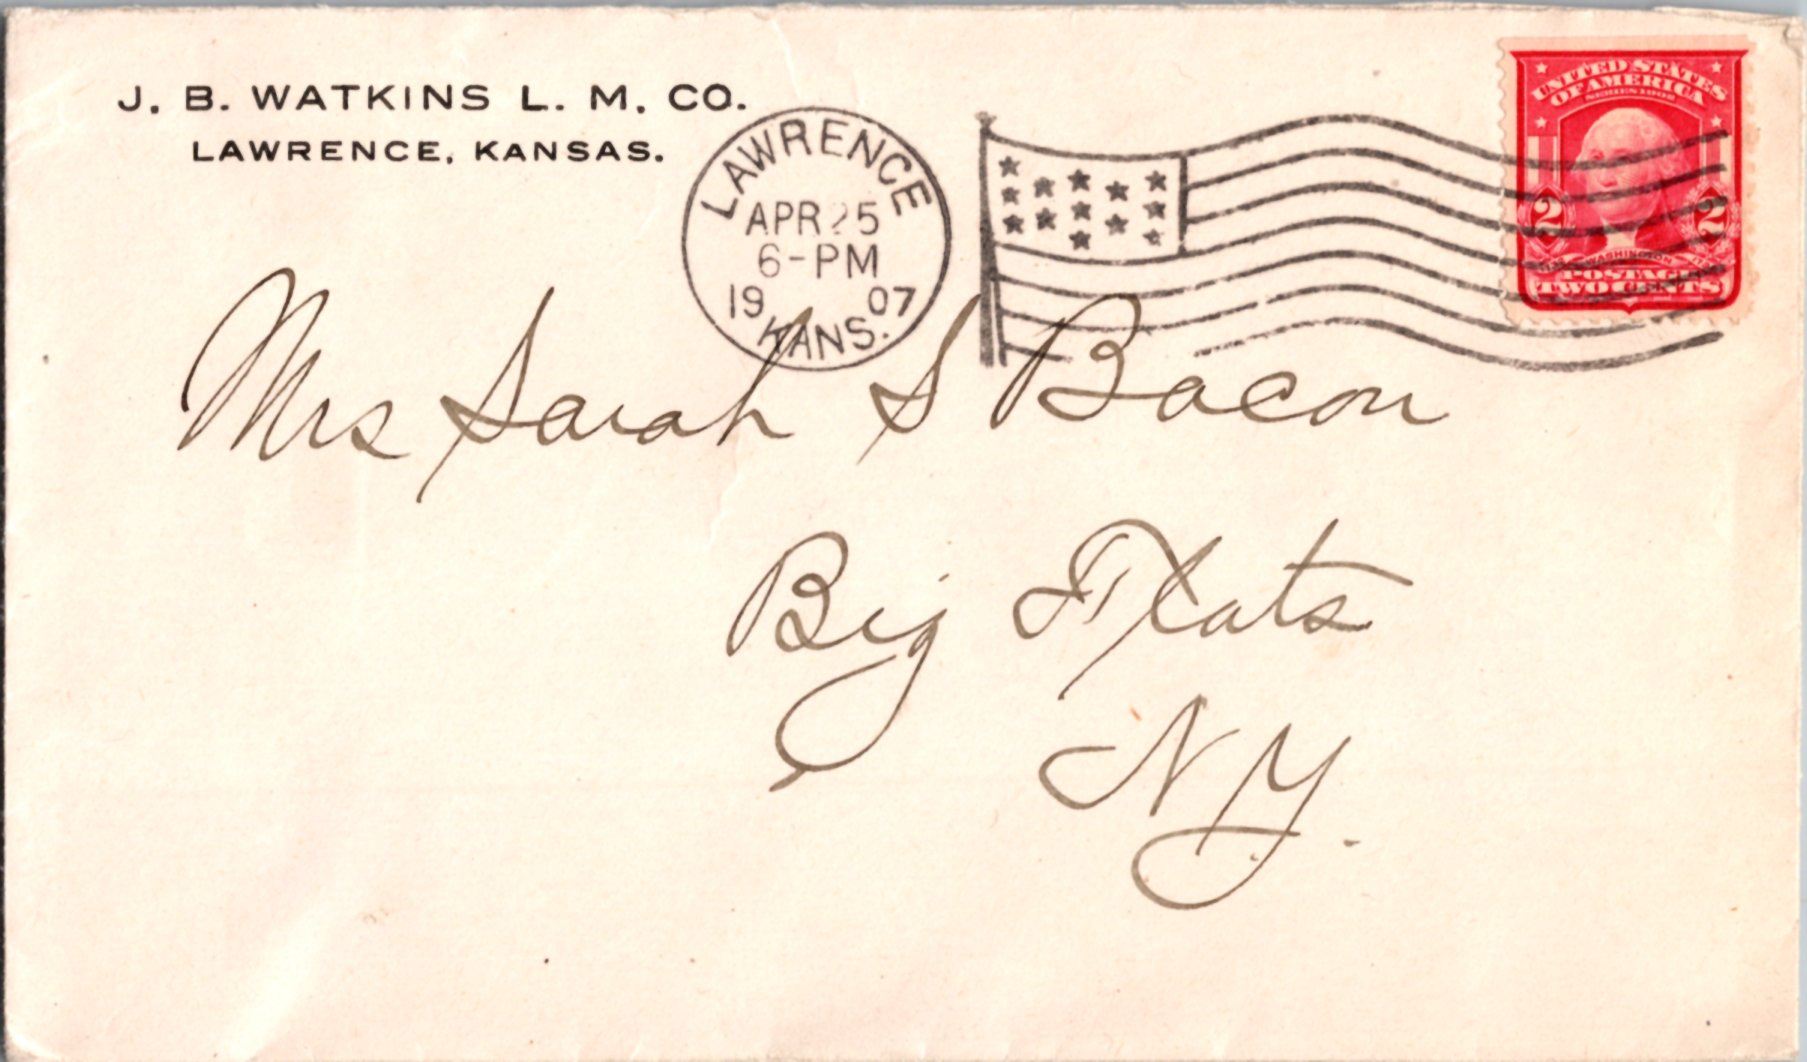 J. B. WATKINS L. M. CO.
LAWRENCE, KANSAS.
LAWRENCE
APR 25
6-PM
1907
KANS.
UNITED STATES
OF AMERICA
SERIES 1902
2 2
WASHINGTON
POSTAGE
TWO CENTS
Mrs Sarah S Bacon
Big Flats
N Y.